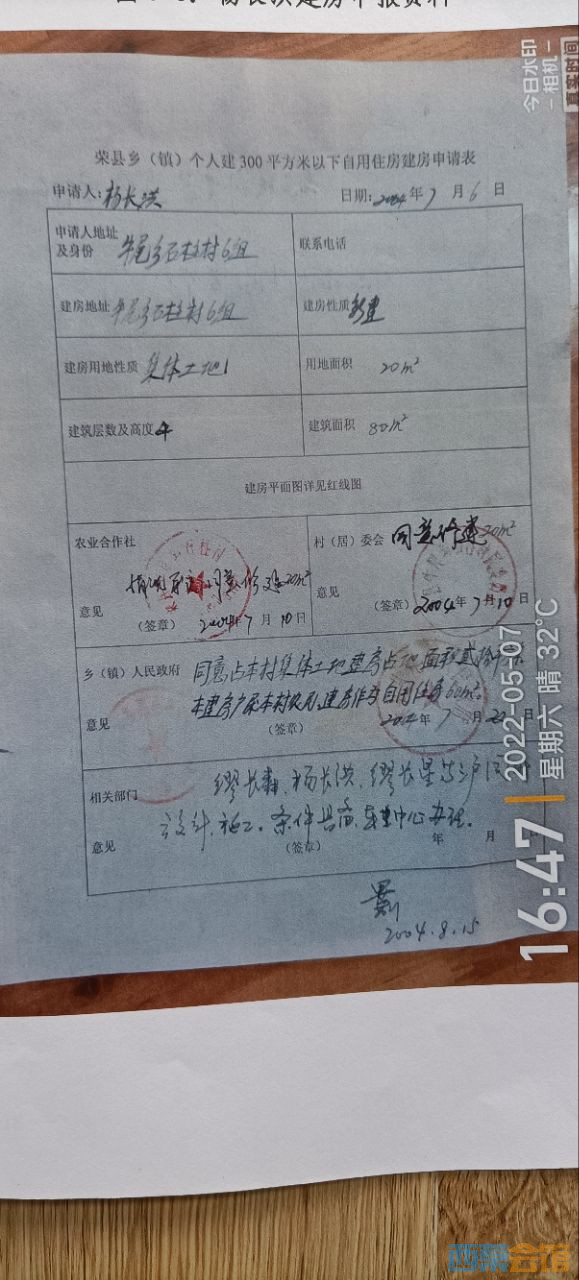 杨长洪建房申报资料
荣县乡（镇）个人建300平方米以下自用住房建房申请表
申请人:杨长洪 日期:2004年7月6日
申请人地址及身份 牛尾乡石柱村6组 联系电话
建房地址 牛尾乡石柱村6组 建房性质 新建
建房用地性质 集体土地 用地面积 20m²
建筑层数及高度 4 建筑面积 80m²
建房平面图详见红线图
农业合作社 村（居）委会 同意修建20m²
同意修建20m²
意见 意见
（签章） 2004年7月10日 （签章） 2004年7月10日
乡（镇）人民政府 同意占本村集体土地建房占地面积贰拾
本建房户系本村农户,建房作为自用住房60m².
意见 （签章） 2004年7月22日
相关部门 缪长森、杨长洪、缪长星
设计、施工。条件具备,中心办理。
意见 （签章） 年 月
2004.8.15
今日水印
-相机-
真实时间
16:47
2022-05-07
星期六 晴 32℃
西蔡会馆